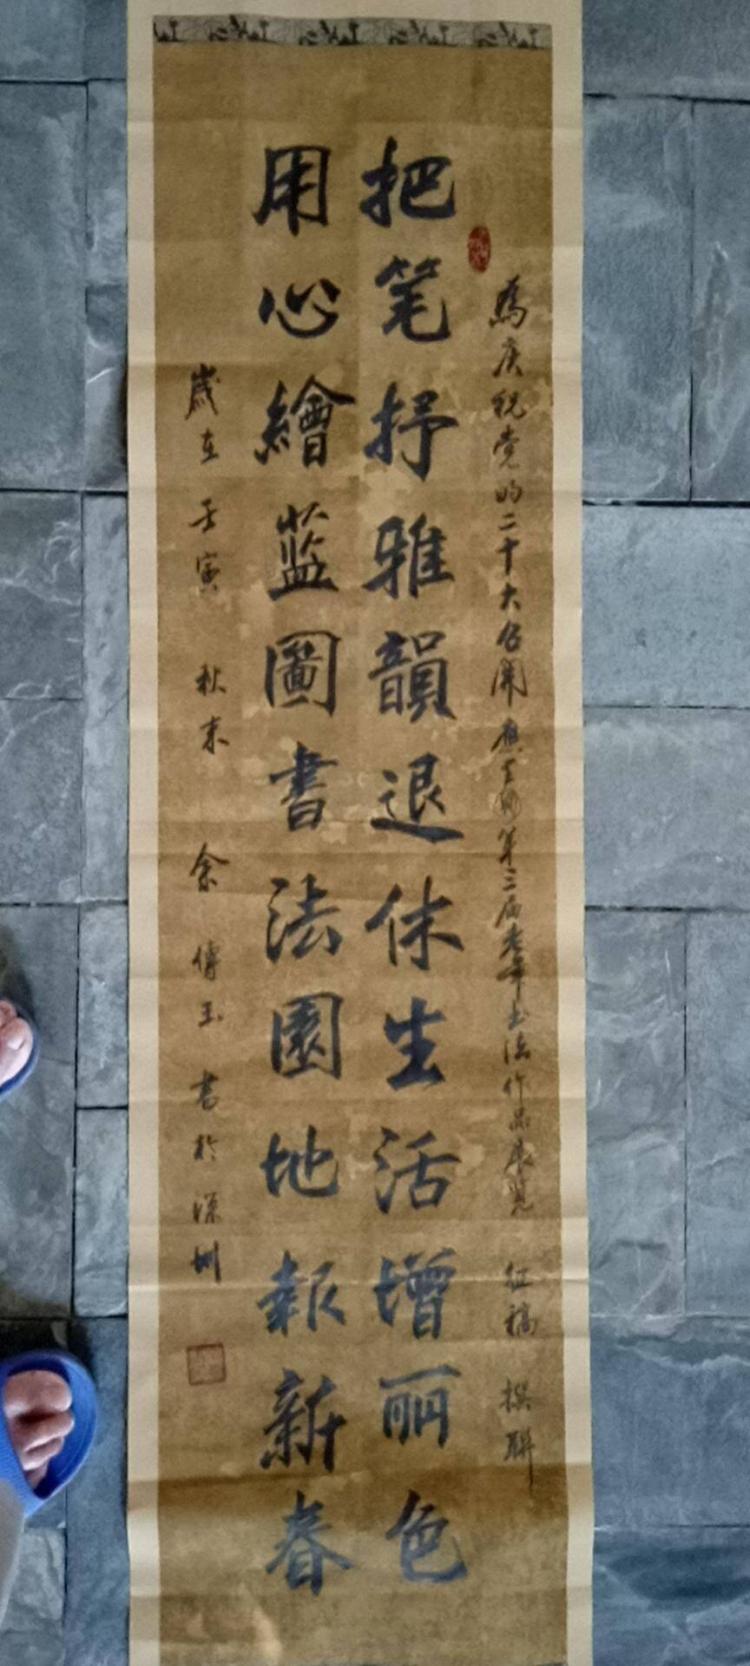 為庆祝党的二十大召開 第三届老年书法作品展览 征稿 撰聯
把笔抒雅韻退休生活增丽色
用心繪蓝圖書法園地報新春
歲在壬寅 秋末 余傅玉書於深圳